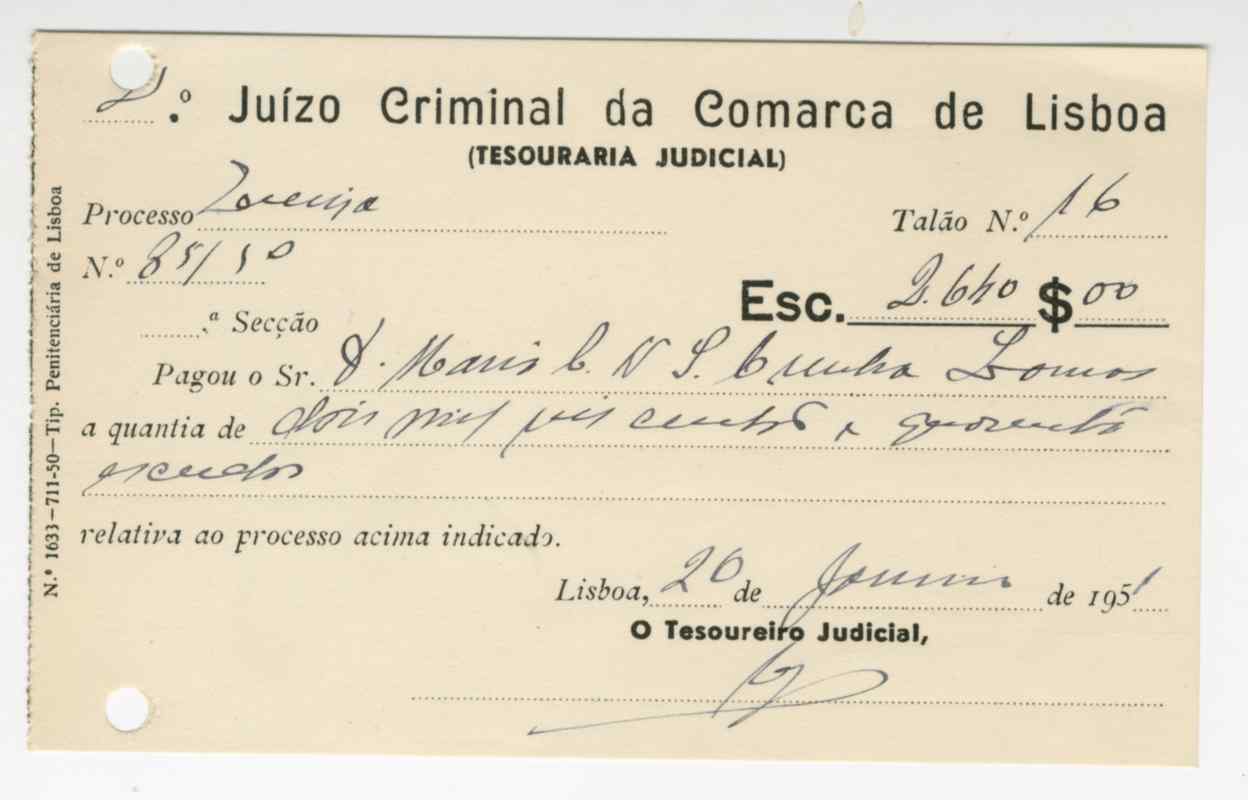 2.º Juízo Criminal da Comarca de Lisboa
(TESOURARIA JUDICIAL)
Processo
Talão N.º 16
N.º 85/50
Esc. 2.640 $ 00
.ª Secção
Pagou o Sr. D. Maria C. N S. Cunha Lemos
a quantia de dois mil seis centos e quarenta
escudos
relativa ao processo acima indicado.
Lisboa, 20 de Janeiro de 1951
O Tesoureiro Judicial,
N.º 1633—711-50—Tip. Penitenciária de Lisboa